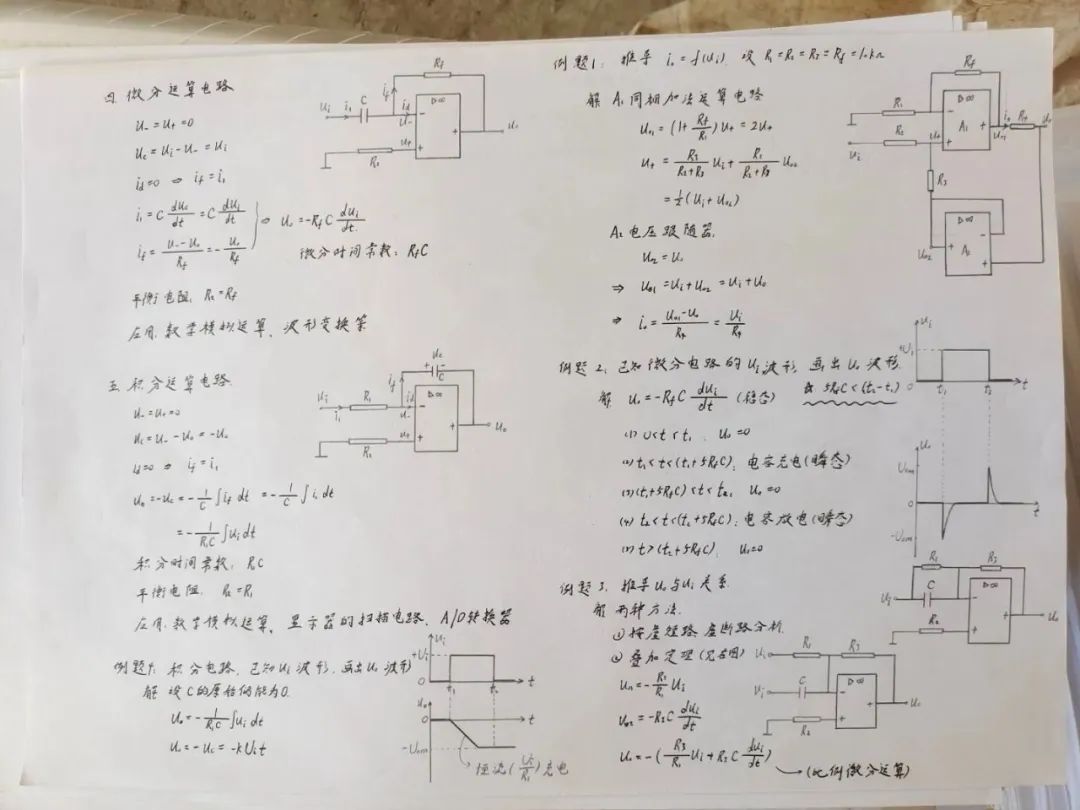 四. 微分运算电路
U₋=U₊=0
U_c=U_i-U₋=U_i
i_d=0 ⇒ i_f=i₁
i₁=C dU_c/dt=C dU_i/dt
i_f=(U₋-U_o)/R_f=-U_o/R_f
⇒ U_o=-R_f C dU_i/dt
微分时间常数: R_fC
平衡电阻: R₂=R_f
应用: 数学模拟运算、波形变换等
U_i i₁ C i_f i_d U₋ U₊ R_f R₂ ▷∞ - + + U_o
五. 积分运算电路
U₋=U₊=0
U_c=U₋-U_o=-U_o
i_d=0 ⇒ i_f=i₁
U_o=-U_c=-1/C ∫i_f dt=-1/C ∫i₁dt
=-1/(R₁C) ∫U_i dt
积分时间常数: R₁C
平衡电阻: R₂=R₁
应用: 数学模拟运算、显示器的扫描电路、A/D转换器
U_i i₁ R₁ i_f i_d U₋ U₊ + U_c - C R₂ ▷∞ - + + U_o
例题1: 积分电路, 已知U_i波形, 画出U_o波形
解 设C的原始储能为0.
U_o=-1/(R₁C) ∫U_i dt
U_o=-U_c=-kU_it
U_i +U_i 0 t₁ t₂ t
u_o 0 -U_om t
恒流(U_i/R₁)充电
例题1: 推导 i_o=f(U_i). 设 R₁=R₂=R₃=R_f=10kΩ
解 A₁同相加法运算电路
U_o1=(1+R_f/R₁)U₊=2U₊
U₊=R₃/(R₂+R₃) U_i+R₂/(R₂+R₃) U_o2
=½(U_i+U_o2)
A₂电压跟随器.
U_o2=U_o
⇒ U_o1=U_i+U_o2=U_i+U_o
⇒ i_o=(U_o1-U_o)/R₄=U_i/R₄
R_f R₁ R₂ U_i U₊ ▷∞ A₁ - + + i_o R₄ U_o1 U_o R₃ U_o2 ▷∞ A₂
例题2: 已知微分电路的U_i波形, 画出U_o波形.
解 U_o=-R_fC dU_i/dt (稳态) 设 5R_fC<(t₂-t₁)
(1) 0<t<t₁, U_o=0
(2) t₁<t<(t₁+5R_fC): 电容充电(瞬态)
(3) (t₁+5R_fC)<t<t₂, U_o=0
(4) t₂<t<(t₂+5R_fC): 电容放电(瞬态)
(5) t>(t₂+5R_fC), U_o=0
U_i +U_i 0 t₁ t₂ t
U_o U_om 0 -U_om t
例题3. 推导U_o与U_i关系.
解 两种方法.
① 按虚短路 虚断路分析.
② 叠加定理(见右图)
U_o1=-R₃/R₁ U_i
U_o2=-R₃C dU_i/dt
U_o=-(R₃/R₁ U_i+R₃C dU_i/dt)
(比例微分运算)
R₁ R₃ C U_i R₂ ▷∞ - + + U_o
U_i R₁ R₃ U_i C R₂ ▷∞ - + + U_o